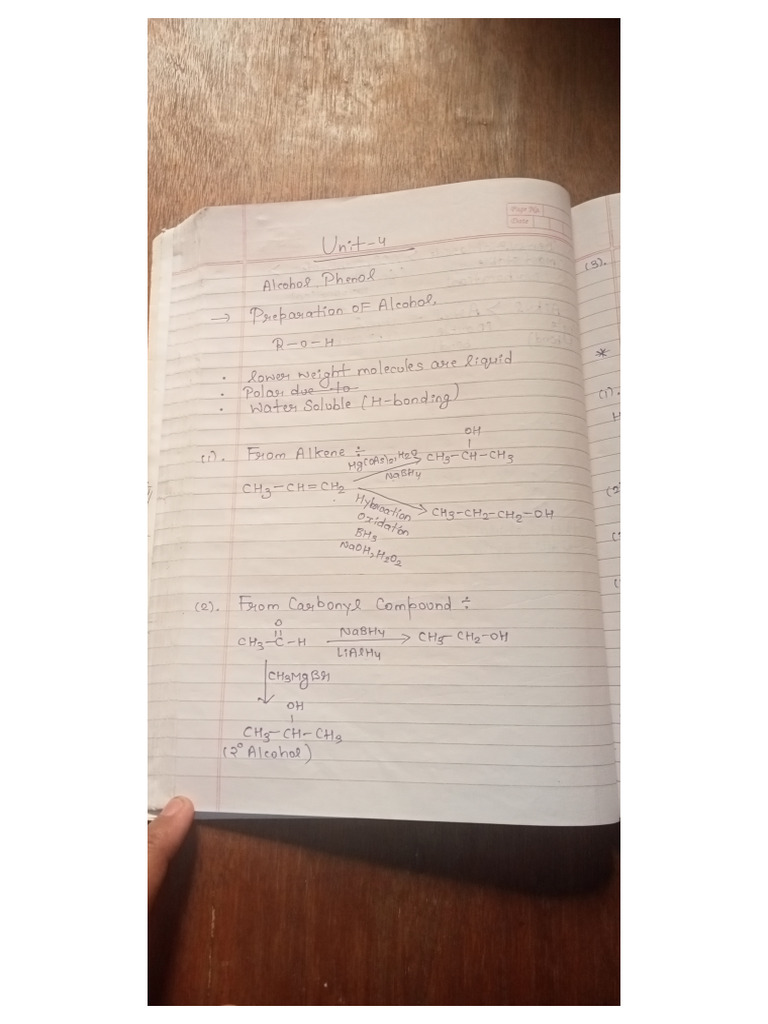 Page No.
Date
Unit-4
Alcohol Phenol
→ Preparation OF Alcohol,
R-O-H
• lower weight molecules are liquid
• Polar due to
• Water Soluble (H-bonding)
(1). From Alkene ÷
OH
Hg(OAs)2, H2O
CH3-CH-CH3
NaBH4
CH3-CH=CH2
CH3-CH2-CH2-OH
Oxidation
BH3
NaOH, H2O2
(2). From Carbonyl Compound ÷
O
CH3-C-H
NaBH4
LiAlH4
CH3-CH2-OH
CH3MgBr
OH
CH3-CH-CH3
(2° Alcohol)
(3).
*
(1).